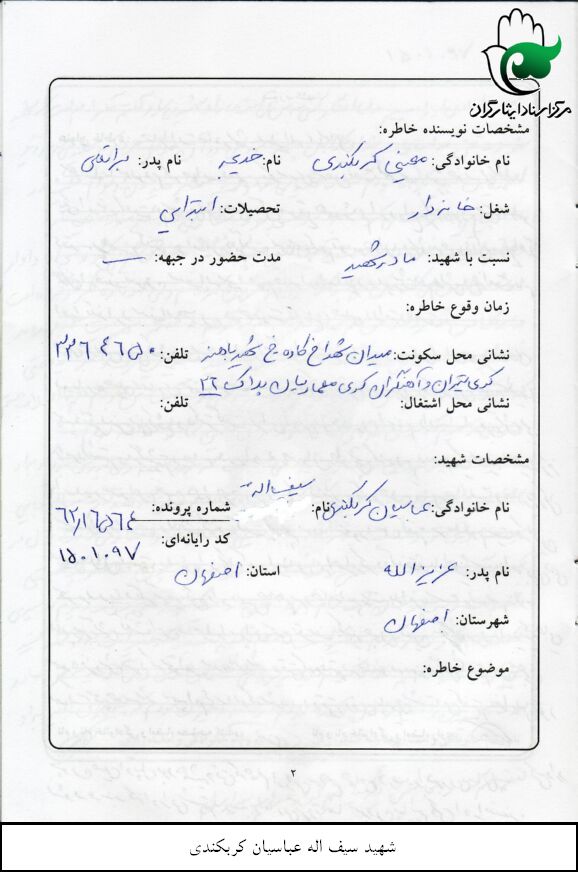 مرکز اسناد ایثارگران
مشخصات نویسنده خاطره:
نام خانوادگی: معینی کربکندی نام: خدیجه نام پدر: براتعلی
شغل: خانه دار تحصیلات: ابتدایی
نسبت با شهید: مادر شهید مدت حضور در جبهه: ــ
زمان وقوع خاطره:
نشانی محل سکونت: میدان شهدا خ کاوه خ شهید باهنر تلفن:
کوی و آهنگران کوی معماریان پلاک ۲۶
نشانی محل اشتغال: تلفن:
مشخصات شهید:
نام خانوادگی: عباسیان کربکندی نام: سیف اله شماره پرونده:
کد رایانه‌ای: ۱۵۰۱۰۹۷
نام پدر: عزیزالله استان: اصفهان
شهرستان: اصفهان
موضوع خاطره:
۲
شهید سیف اله عباسیان کربکندی